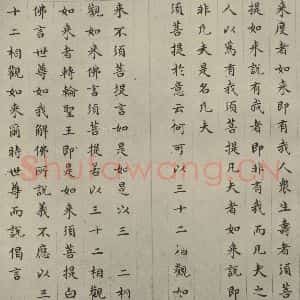 来度者如来即有我人衆生壽者須菩
提如来說有我者即非有我而凡夫之
人以為有我須菩提凡夫者如来說即
非凡夫是名凡夫
須菩提於意云何可以三十二相觀如
来不須菩提言如是如是以三 二相
觀如来佛言須菩提若以三十二相觀
如来者轉輪聖王即是如来須菩提白
佛言世尊如我解佛所說義不應以三
十二相觀如来爾時世尊而說偈言
Shufawang.CN